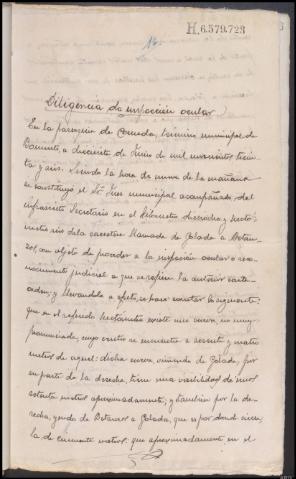 H.6.579.723
Diligencia de inspección ocular
En la parroquia de Cumeda, término municipal de
a diecisiete de Junio de mil novecientos trein
ta y seis. Siendo la hora de nueve de la mañana
se constituyó el Sr. Juez municipal acompañado del
infrascrito Secretario en el kilometro dieciocho y hecto
metro seis de la carretera llamada de Golada a Betan
zos, con objeto de proceder a la inspección ocular o reco
nocimiento judicial a que se refiere la anterior carta
orden; y llevandola a efecto, se pasa a constar lo siguiente:
que en el referido hectometro existe una curva, no muy
pronunciada, cuyo centro se encuentra a sesenta y cuatro
metros de aquel: dicha curva viniendo de Golada, por
su parte de la derecha, tiene una visibilidad de unos
setenta metros aproximadamente, y tambien por la de
recha, yendo de Betanzos a Golada, que es por donde
la de cincuenta metros que aproximadamente en el